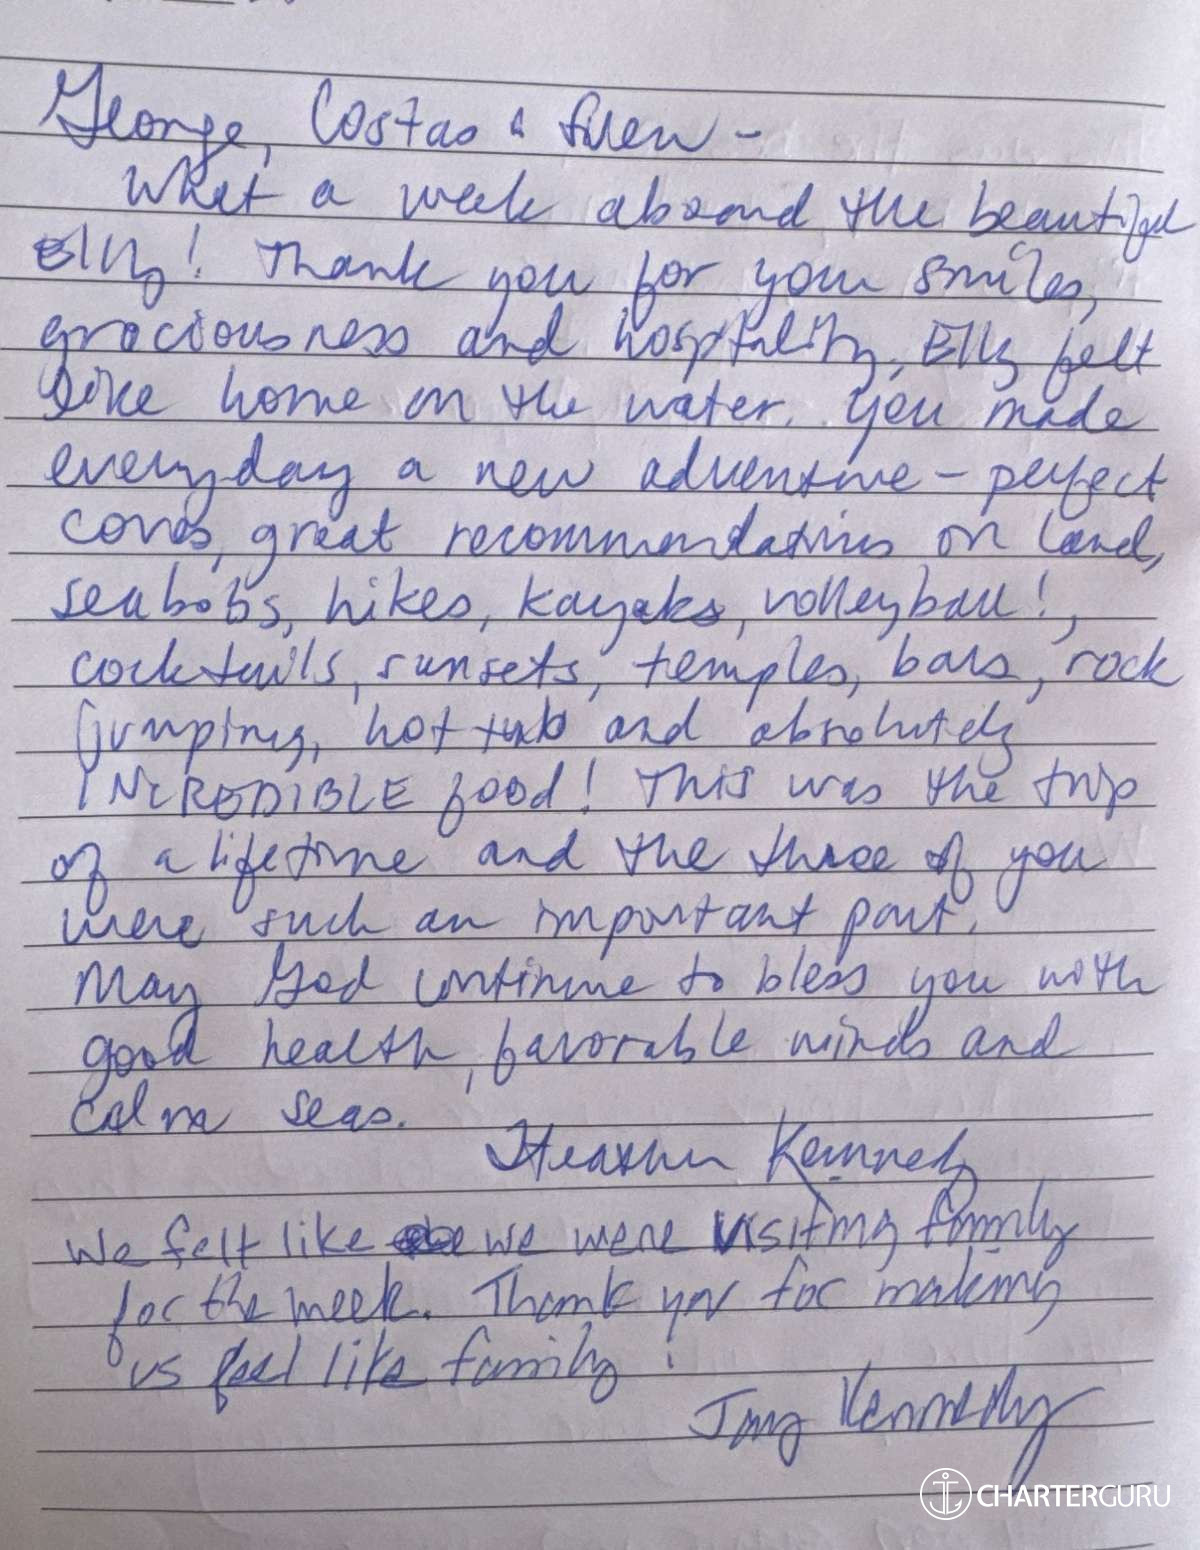 George, Costas &
What a week aboard the beautiful
Elly! Thank you for your smiles,
graciousness and hospitality, Elly felt
like home on the water. You made
everyday a new adventure - perfect
coves, great recommendations on land,
seabobs, hikes, kayaks, volleyball!,
cocktails, sunsets, temples, bars, rock
jumping, hot tub and absolutely
INCREDIBLE food! This was the trip
of a lifetime and the three of you
were such an important part.
May God continue to bless you with
good health, favorable winds and
calm seas.
Heather Kennedy
We felt like we were visiting family
for the week. Thank you for making
us feel like family!
Kennedy
CHARTERGURU